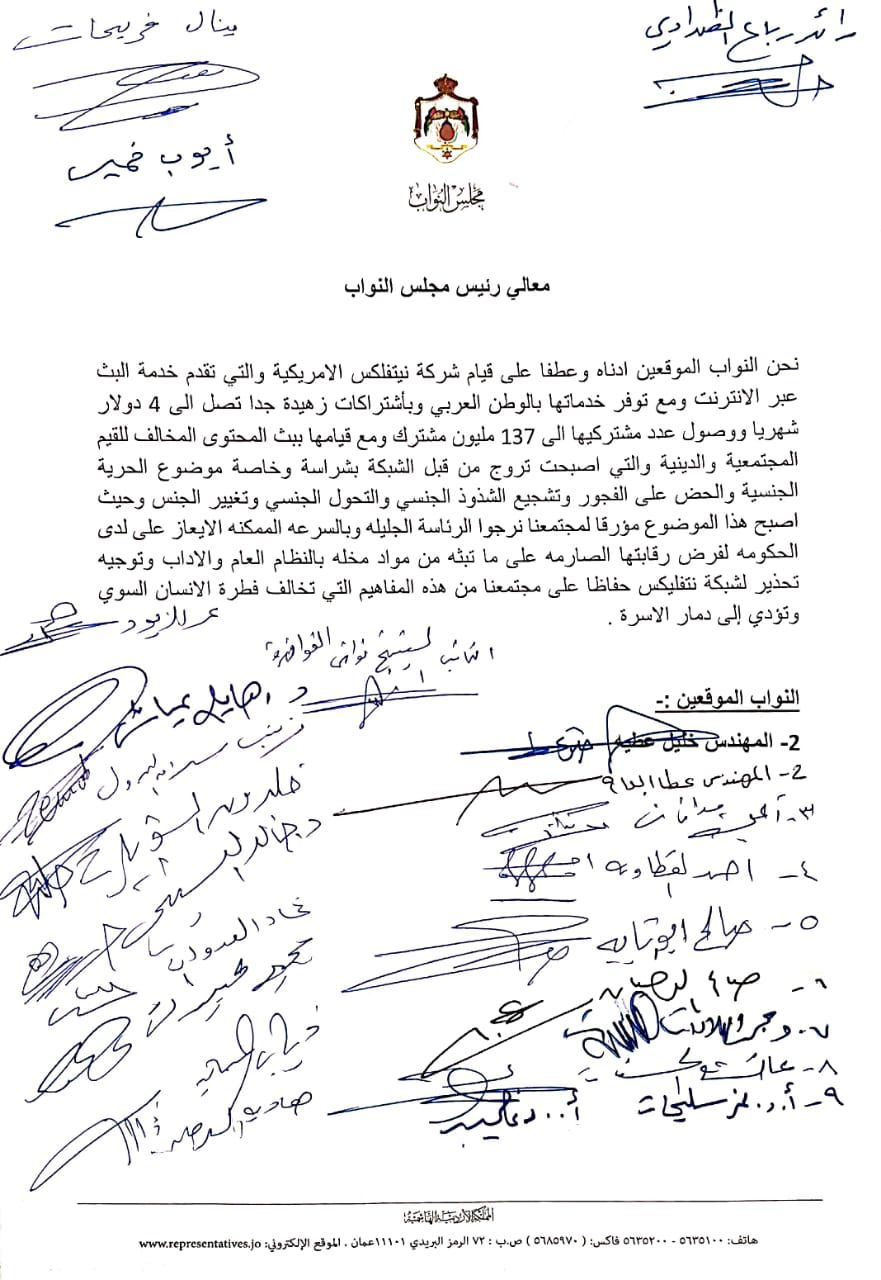 رائد رباع الظهراوي
ينال فريحات
أيوب خميس
مجلس النواب
معالي رئيس مجلس النواب
نحن النواب الموقعين ادناه وعطفا على قيام شركة نيتفلكس الامريكية والتي تقدم خدمة البث
عبر الانترنت ومع توفر خدماتها بالوطن العربي وبأشتراكات زهيدة جدا تصل الى 4 دولار
شهريا ووصول عدد مشتركيها الى 137 مليون مشترك ومع قيامها ببث المحتوى المخالف للقيم
المجتمعية والدينية والتي اصبحت تروج من قبل الشبكة بشراسة وخاصة موضوع الحرية
الجنسية والحض على الفجور وتشجيع الشذوذ الجنسي والتحول الجنسي وتغيير الجنس وحيث
اصبح هذا الموضوع مؤرقا لمجتمعنا نرجوا الرئاسة الجليله وبالسرعه الممكنه الايعاز على لدى
الحكومه لفرض رقابتها الصارمه على ما تبثه من مواد مخله بالنظام العام والاداب وتوجيه
تحذير لشبكة نتفليكس حفاظا على مجتمعنا من هذه المفاهيم التي تخالف فطرة الانسان السوي
وتؤدي إلى دمار الاسرة .
عمر الزيود
النائب
النواب الموقعين :-
2- المهندس خليل عطيه
2- المهندس عطا
٣-
٤- احمد القطاونه
٥- صالح ابو تايه
٦- صفاء
٧-
٨- عائشه الحسنات
٩- أ.د.
د. هايل عياش
زينب
خلدون الشويات
د. خالد
محمد
ذياب
هادية السرحان
المملكة الأردنية الهاشمية
هاتف: ٥٦٣٥١٠٠ - ٥٦٣٥٢٠٠ فاكس: ( ٥٦٨٥٩٧٠ ) ص.ب : ٧٢ الرمز البريدي ١١١٠١عمان . الموقع الإلكتروني: www.representatives.jo